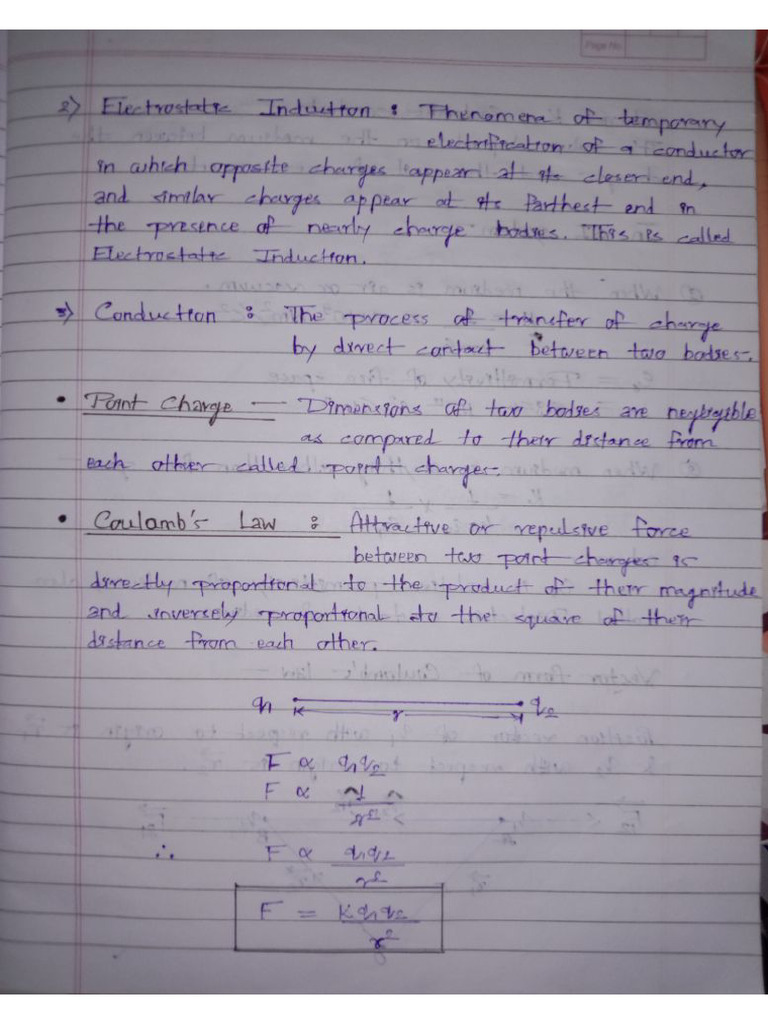 Page No.
2) Electrostatic Induction : Phenomena of temporary
electrification of a conductor
in which opposite charges appear at its closer end,
and similar charges appear at its farthest end in
the presence of nearly charge bodies. This is called
Electrostatic Induction.
3) Conduction : The process of transfer of charge
by direct contact between two bodies.
• Point Charge — Dimensions of two bodies are negligible
as compared to their distance from
each other called point charges.
• Coulamb's Law : Attractive or repulsive force
between two point charges is
directly proportional to the product of their magnitude
and inversely proportional to the square of their
distance from each other.
q1 r q2
F ∝ q1q2
F ∝ 1/r²
∴ F ∝ q1q2/r²
F = Kq1q2/r²